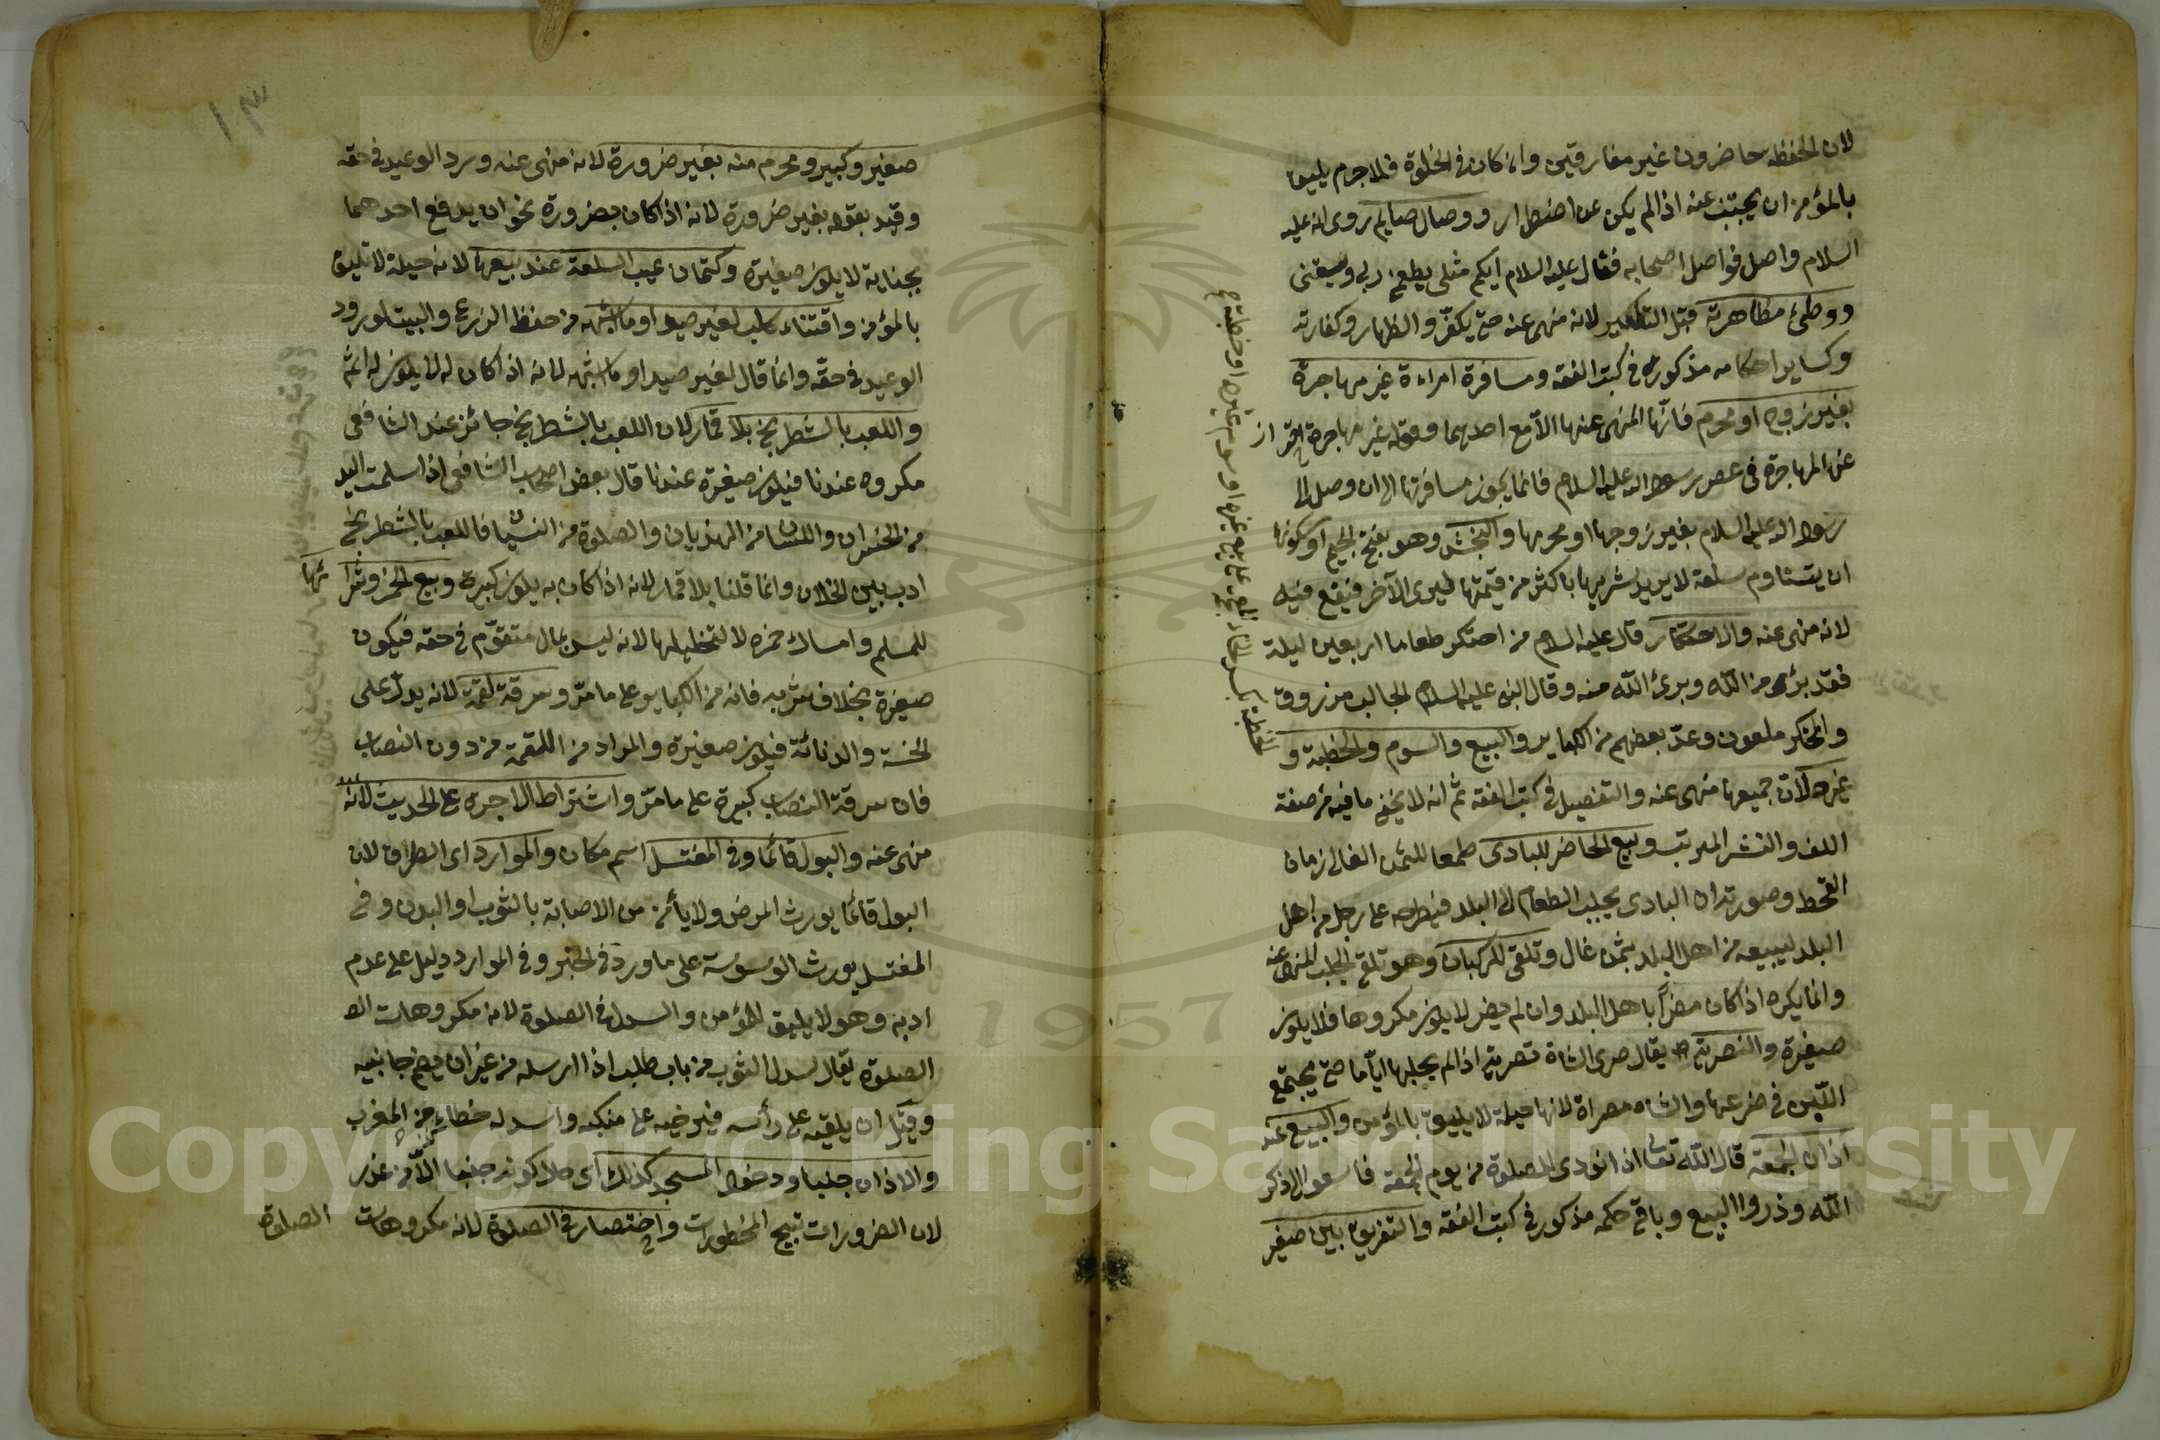 لان الحفظة حاضرون غير مفارقين وان كان في الخلوة فلا جرم يليق
بالمؤمن ان يجتنب عنه اذا لم يكن عن اضطرار ووصال صايم روى انه عليه
السلام واصل فواصل اصحابه فقال عليه السلام ايكم مثلى يطعمني ربى ويسقنى
ووطئ مظاهرته قبل التكفير لانه منهى عنه حتى يكفر والظهار وكفارته
وساير احكامه مذكورة في كتب الفقه ومسافرة امراءة غير مهاجرة
بغير زوج او محرم فانها المنهى عنها الا مع احدهما وقوله غير مهاجرة احتراز
عن المهاجرة في عصر رسول الله عليه السلام فانما يجوز مسافرتها الى ان وصل الى
رسول الله عليه السلام بغير زوجها او محرمها والنجش وهو بفتح الجيم او سكونها
ان يتساوم سلعة لا يريد شريها باكثر من قيمتها ليرى الآخر فيقع فيه
لانه منهى عنه والاحتكار قال عليه السلام من احتكر طعاما اربعين ليلة
فقد برئ من الله وبرئ الله منه وقال النبى عليه السلام الجالب مرزوق
والمحتكر ملعون وعد بعضهم من الكباير والبيع والسوم والخطبة و
غيره لان جميعها منهى عنه والتفصيل في كتب الفقه ثم انه لا يخفى ما فيه من صفة
اللف والنشر المرتب وبيع الحاضر للبادى طمعا للثمن الغالى زمان
القحط وصورته ان البادى يجلب الطعام الى البلد فيطرحه على رجل من اهل
البلد ليبيعه من اهل البلد بثمن غال وتلقى الركبان وهو تلقى الجلب المنهى عنه
وانما يكره اذا كان مضرا باهل البلد وان لم يضر لا يكون مكروها فلا يكون
صغيرة والتصرية يقال صرى الشاة تصرية اذا لم يحلبها اياما حتى يجتمع
اللبن في ضرعها والشاة مصراة لانها حيلة لا يليق بالمؤمن والبيع عند
اذان الجمعة قال الله تعالى اذا نودى للصلوة من يوم الجمعة فاسعوا الى ذكر
الله وذروا البيع وباقى حكمه مذكور في كتب الفقه والتفريق بين صغير
١٣
صغير وكبير ومحرم منه بغير ضرورة لانه منهى عنه ورد الوعيد في حقه
وقيد بقوله بغير ضرورة لانه اذا كان بضرورة نحو ان يدفع احدهما
بجناية لا يكون صغيرة وكتمان عيب السلعة عند بيعها لانه حيلة لا تليق
بالمؤمن واقتناء كلب لغير صيد او ماشية من حفظ الزرع والبيت لورود
الوعيد في حقه وانما قال لغير صيد او ماشية لانه اذا كان له لا يكون له اثم
واللعب بالشطرنج بلا قمار لان اللعب بالشطرنج جائز عند الشافعى
مكروه عندنا فيكون صغيرة عندنا قال بعض اصحاب الشافعى اذا سلمت اليد
من الخسران واللسان من الهذيان والصلوة من النسيان فاللعب بالشطرنج
ادب بين الخلان وانما قلنا بلا قمار لانه اذا كان به يكون كبيرة وبيع الخمر وشرائها
للمسلم وامساك خمره لا لتخليلها لانه ليس بمال متقوم في حقه فيكون
صغيرة بخلاف شربه فانه من الكباير على ما مر وسرقة لقمة لانه يدل على
الخسة والدنائة فيكون صغيرة والمراد من اللقمة من دون النصاب
فان سرقة النصاب كبيرة على ما مر واشتراط الاجرة على الحديث لانه
منهى عنه والبول قائما وفي المغتسل اسم مكان والموارد اى الطرق لان
البول قائما يورث المرض ولا يأمن من الاصابة بالثوب او البدن وفي
المغتسل يورث الوسوسة على ما ورد في الخبر وفي الموارد دليل على عدم
ادبه وهو لا يليق للمؤمن والسدل في الصلوة لانه مكروهات الصـ
الصلوة يقال سدل الثوب من باب طلب اذا ارسله من غير ان يضم جانبيه
وقيل ان يلقيه على رأسه فيرخيه على منكبه واسدله خطاء من المغرب
والاذان جنبا ودخول المسجد كذلك اى حال كونه جنبا الا من عذر
لان الضرورات تبيح المحظورات واختصار في الصلوة لانه مكروهات
الصلوة
Copyright © King Saud University
1957